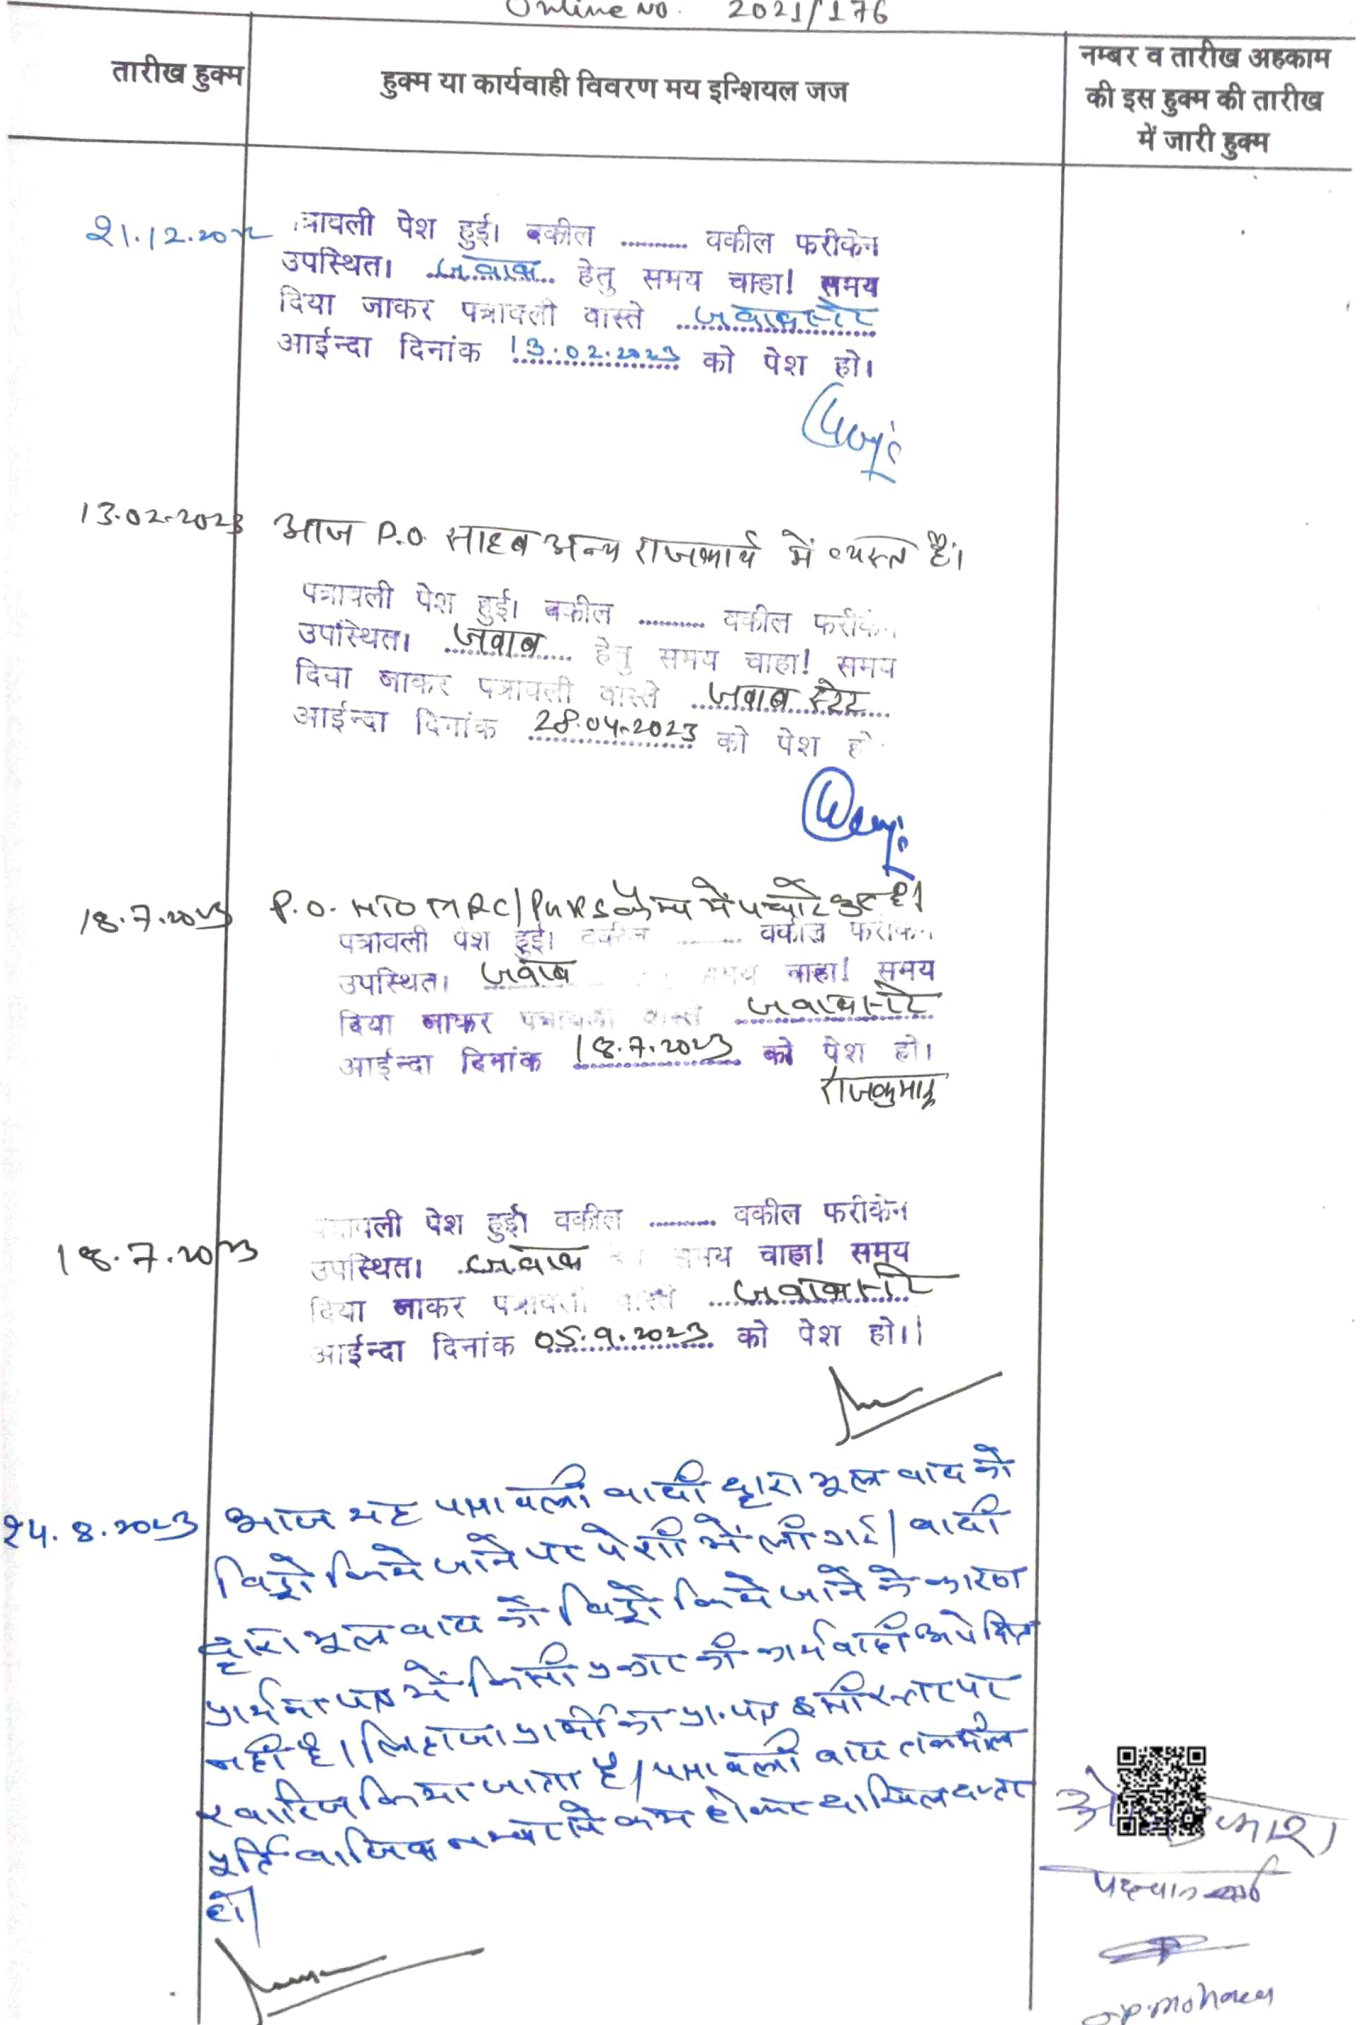 Online No. 2021/176
तारीख हुक्म
हुक्म या कार्यवाही विवरण मय इन्शियल जज
नम्बर व तारीख अहकाम
की इस हुक्म की तारीख
में जारी हुक्म
21.12.2022
त्रावली पेश हुई। वकील ......... वकील फरीकेन
उपस्थित। जवाब हेतु समय चाहा! समय
दिया जाकर पत्रावली वास्ते जवाब स्टे
आईन्दा दिनांक 13.02.2023 को पेश हो।
13.02.2023
आज P.O. साहब अन्य राजकार्य में व्यस्त हैं।
पत्रावली पेश हुई। वकील ......... वकील फरीके
उपस्थित। जवाब हेतु समय चाहा! समय
दिया जाकर पत्रावली वास्ते जवाब स्टेट
आईन्दा दिनांक 28.04.2023 को पेश हो
18.7.2023
P.O. MRC/ कैम्प में है।
पत्रावली पेश हुई। वकील ......... वकील फरीकेन
उपस्थित। जवाब समय चाहा! समय
दिया जाकर पत्रावली वास्ते जवाब स्टे
आईन्दा दिनांक 18.7.2023 को पेश हो।
राजकुमार
18.7.2023
पत्रावली पेश हुई। वकील ......... वकील फरीकेन
उपस्थित। जवाब समय चाहा! समय
दिया जाकर पत्रावली वास्ते जवाब स्टे
आईन्दा दिनांक 05.9.2023 को पेश हो।
24.8.2023
आज यह पत्रावली वादी द्वारा मूल वाद को
विड्रो किये जाने पर पेशी में ली गई। वादी
द्वारा मूल वाद को विड्रो किये जाने के कारण
प्रार्थना पत्र में किसी प्रकार की कार्यवाही अपेक्षित
नहीं है। लिहाजा प्रार्थी का प्रा.पत्र इसी स्तर पर
खारिज किया जाता है। पत्रावली बाद तकमील
पूर्ति वाजिब नम्बर से कम होकर दाखिल दफ्तर
हो।
O.P. Mohan